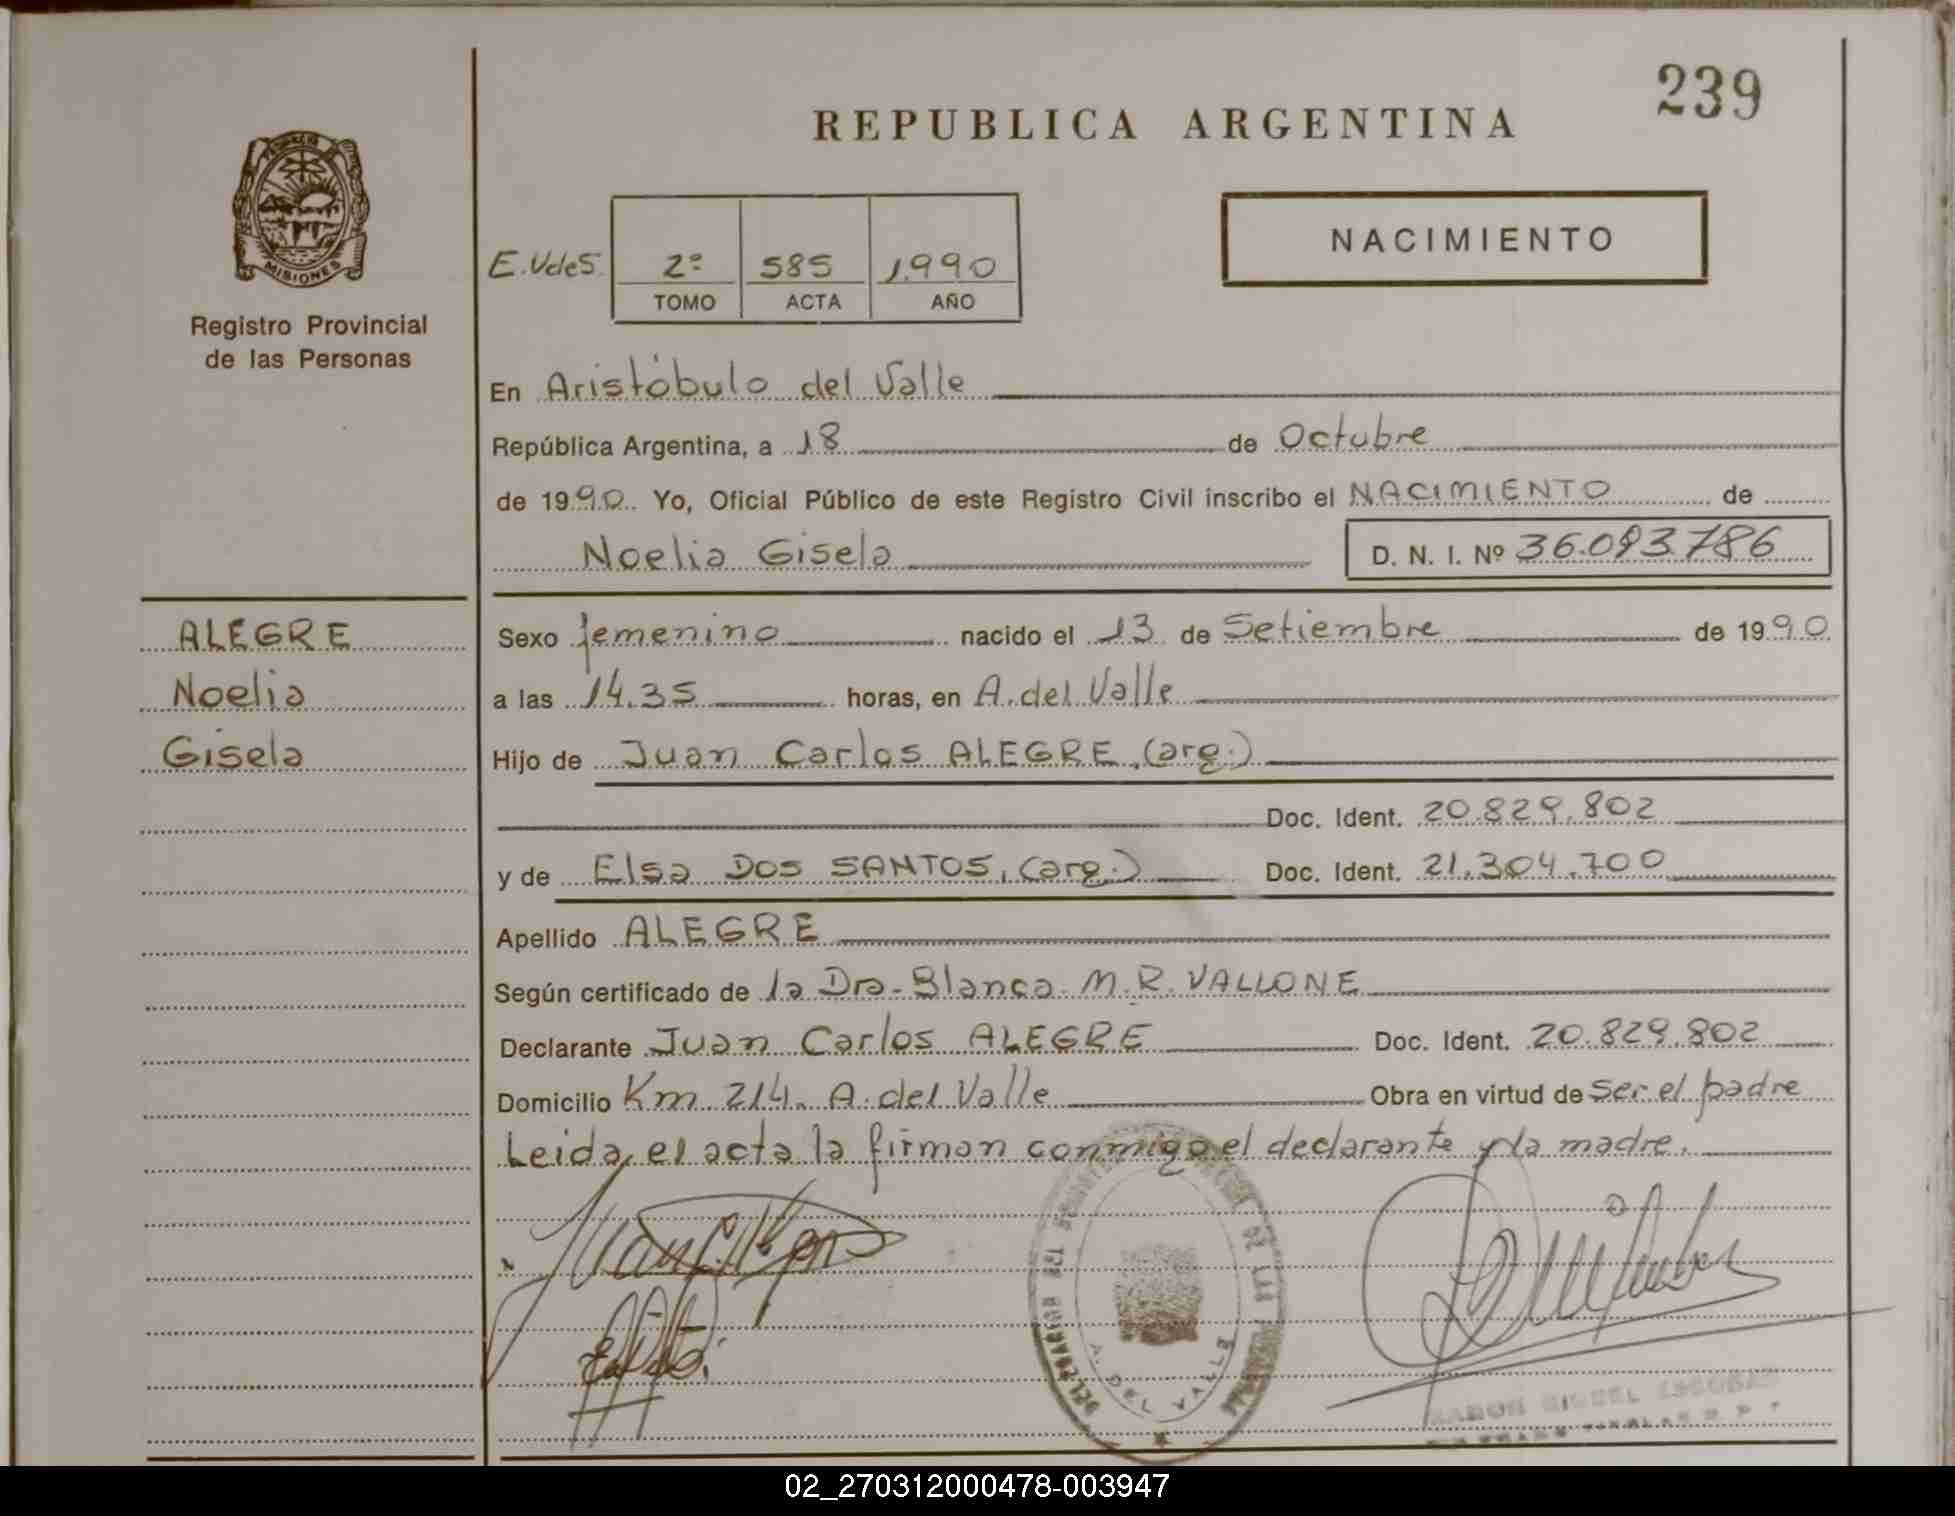 239
REPUBLICA ARGENTINA
MISIONES
Registro Provincial
de las Personas
E.VdeS. 2º 585 1.990
TOMO ACTA AÑO
NACIMIENTO
En Aristóbulo del Valle
República Argentina, a 18 de Octubre
de 1990. Yo, Oficial Público de este Registro Civil inscribo el NACIMIENTO de
Noelia Gisela D. N. I. Nº 36.093.786
ALEGRE
Noelia
Gisela
Sexo femenino nacido el 13 de Setiembre de 1990
a las 14.35 horas, en A. del Valle
Hijo de Juan Carlos ALEGRE, (arg.)
Doc. Ident. 20.829.802
y de Elsa DOS SANTOS, (arg.) Doc. Ident. 21.304.700
Apellido ALEGRE
Según certificado de la Dra. Blanca M.R. VALLONE
Declarante Juan Carlos ALEGRE Doc. Ident. 20.829.802
Domicilio Km. 214. A. del Valle Obra en virtud de ser el padre
Leida el acta la firman conmigo el declarante y la madre.
A. DEL VALLE
02_270312000478-003947